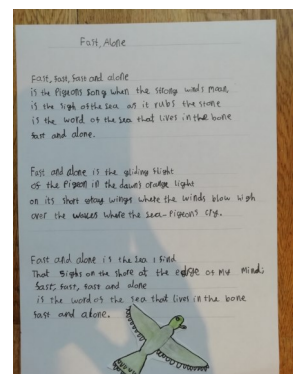 Fast, Alone
Fast, fast, fast and alone
is the Pigeons song when the strong winds moan,
is the sigh of the sea as it rubs the stone
is the word of the sea that lives in the bone
fast and alone.
Fast and alone is the gliding flight
of the Pigeon in the dawns orange light
on its short wings where the winds blow high
over the waves where the sea-pigeons cry.
Fast and alone is the sea I find
That sighs on the shore at the edge of my mind,
fast, fast, fast and alone
is the word of the sea that lives in the bone
fast and alone.